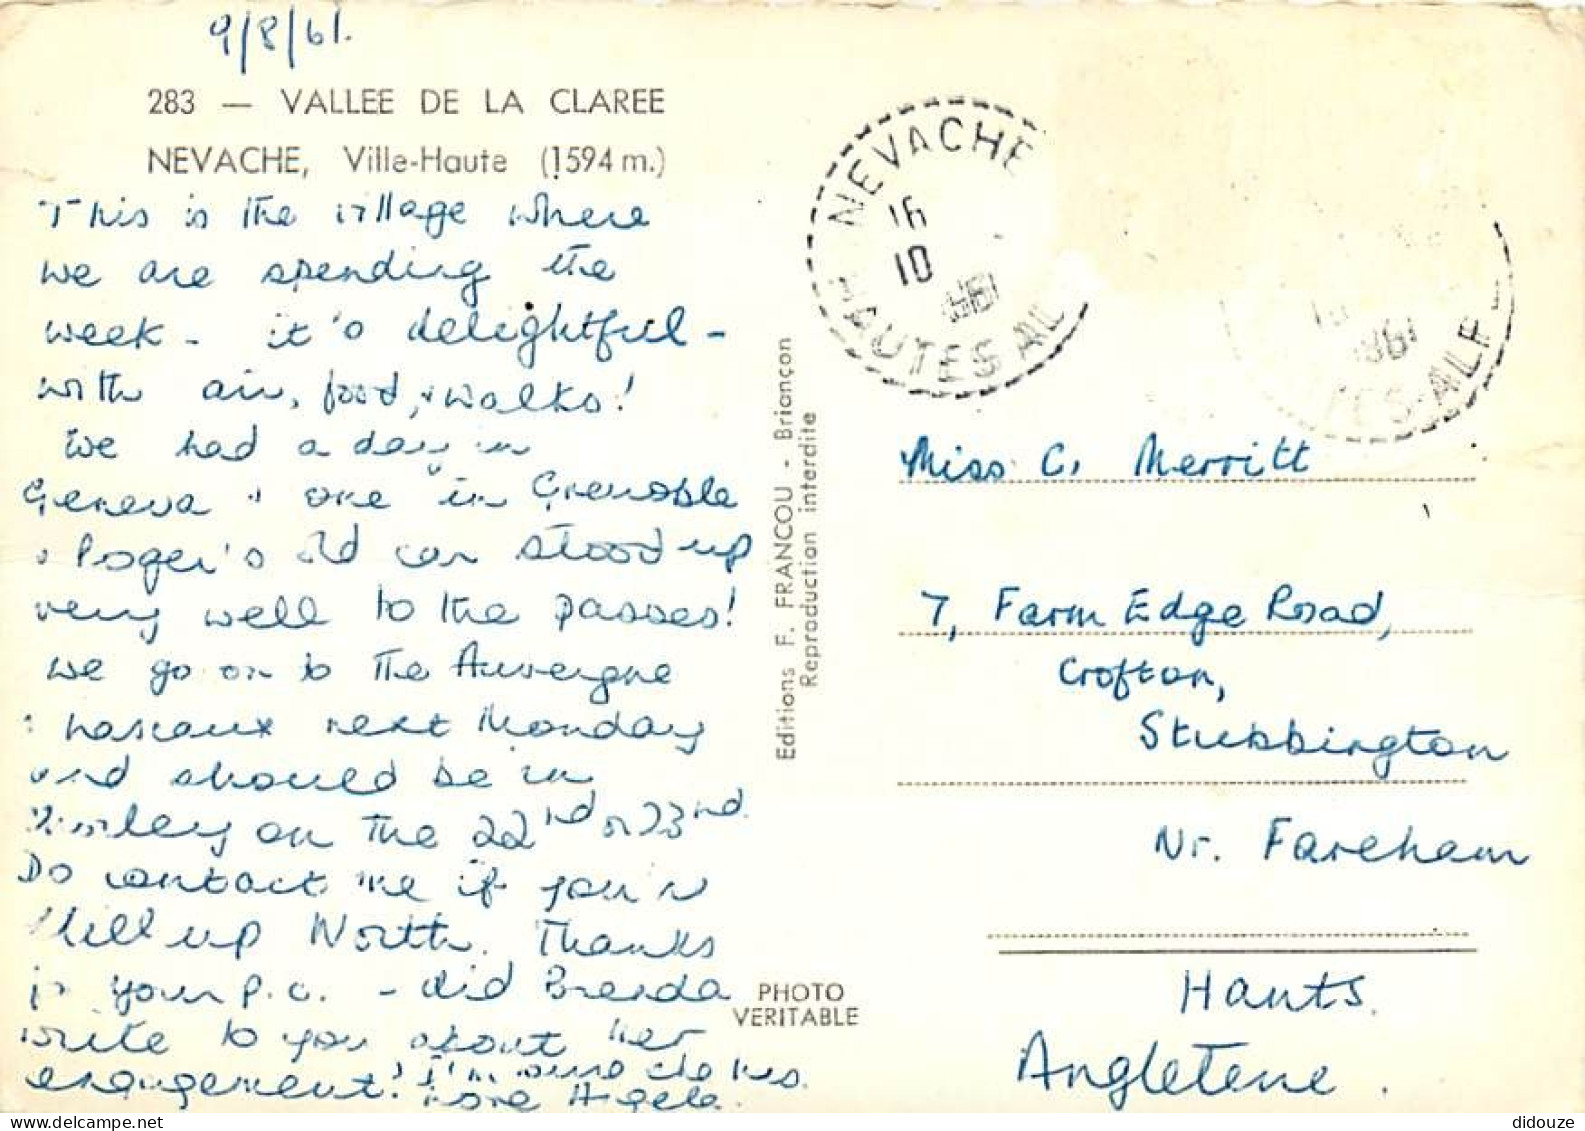 9/8/61.
283 — VALLEE DE LA CLAREE
NEVACHE, Ville-Haute (1594 m.)
This is the village where
we are spending the
week - it's delightful -
with air, food, & walks!
We had a day in
Geneva & one in Grenoble
& Roger's old car stood up
very well to the passes!
We go on to the Auvergne
& Lascaux next Monday
and should be in
on the 22nd or 23rd.
Do contact me if you're
still up North. Thanks
for your p.c. - did Brenda
write to you about her
engagement! I'm sure she
Love Angela.
Editions F. FRANCOU - Briançon
Reproduction interdite
PHOTO
VERITABLE
NEVACHE
16
10
1961
HAUTES AL
1961
ES-ALP
Miss C. Merritt
7, Farm Edge Road,
Crofton,
Stubbington
Nr. Fareham
Hants.
Angleterre.
didouze